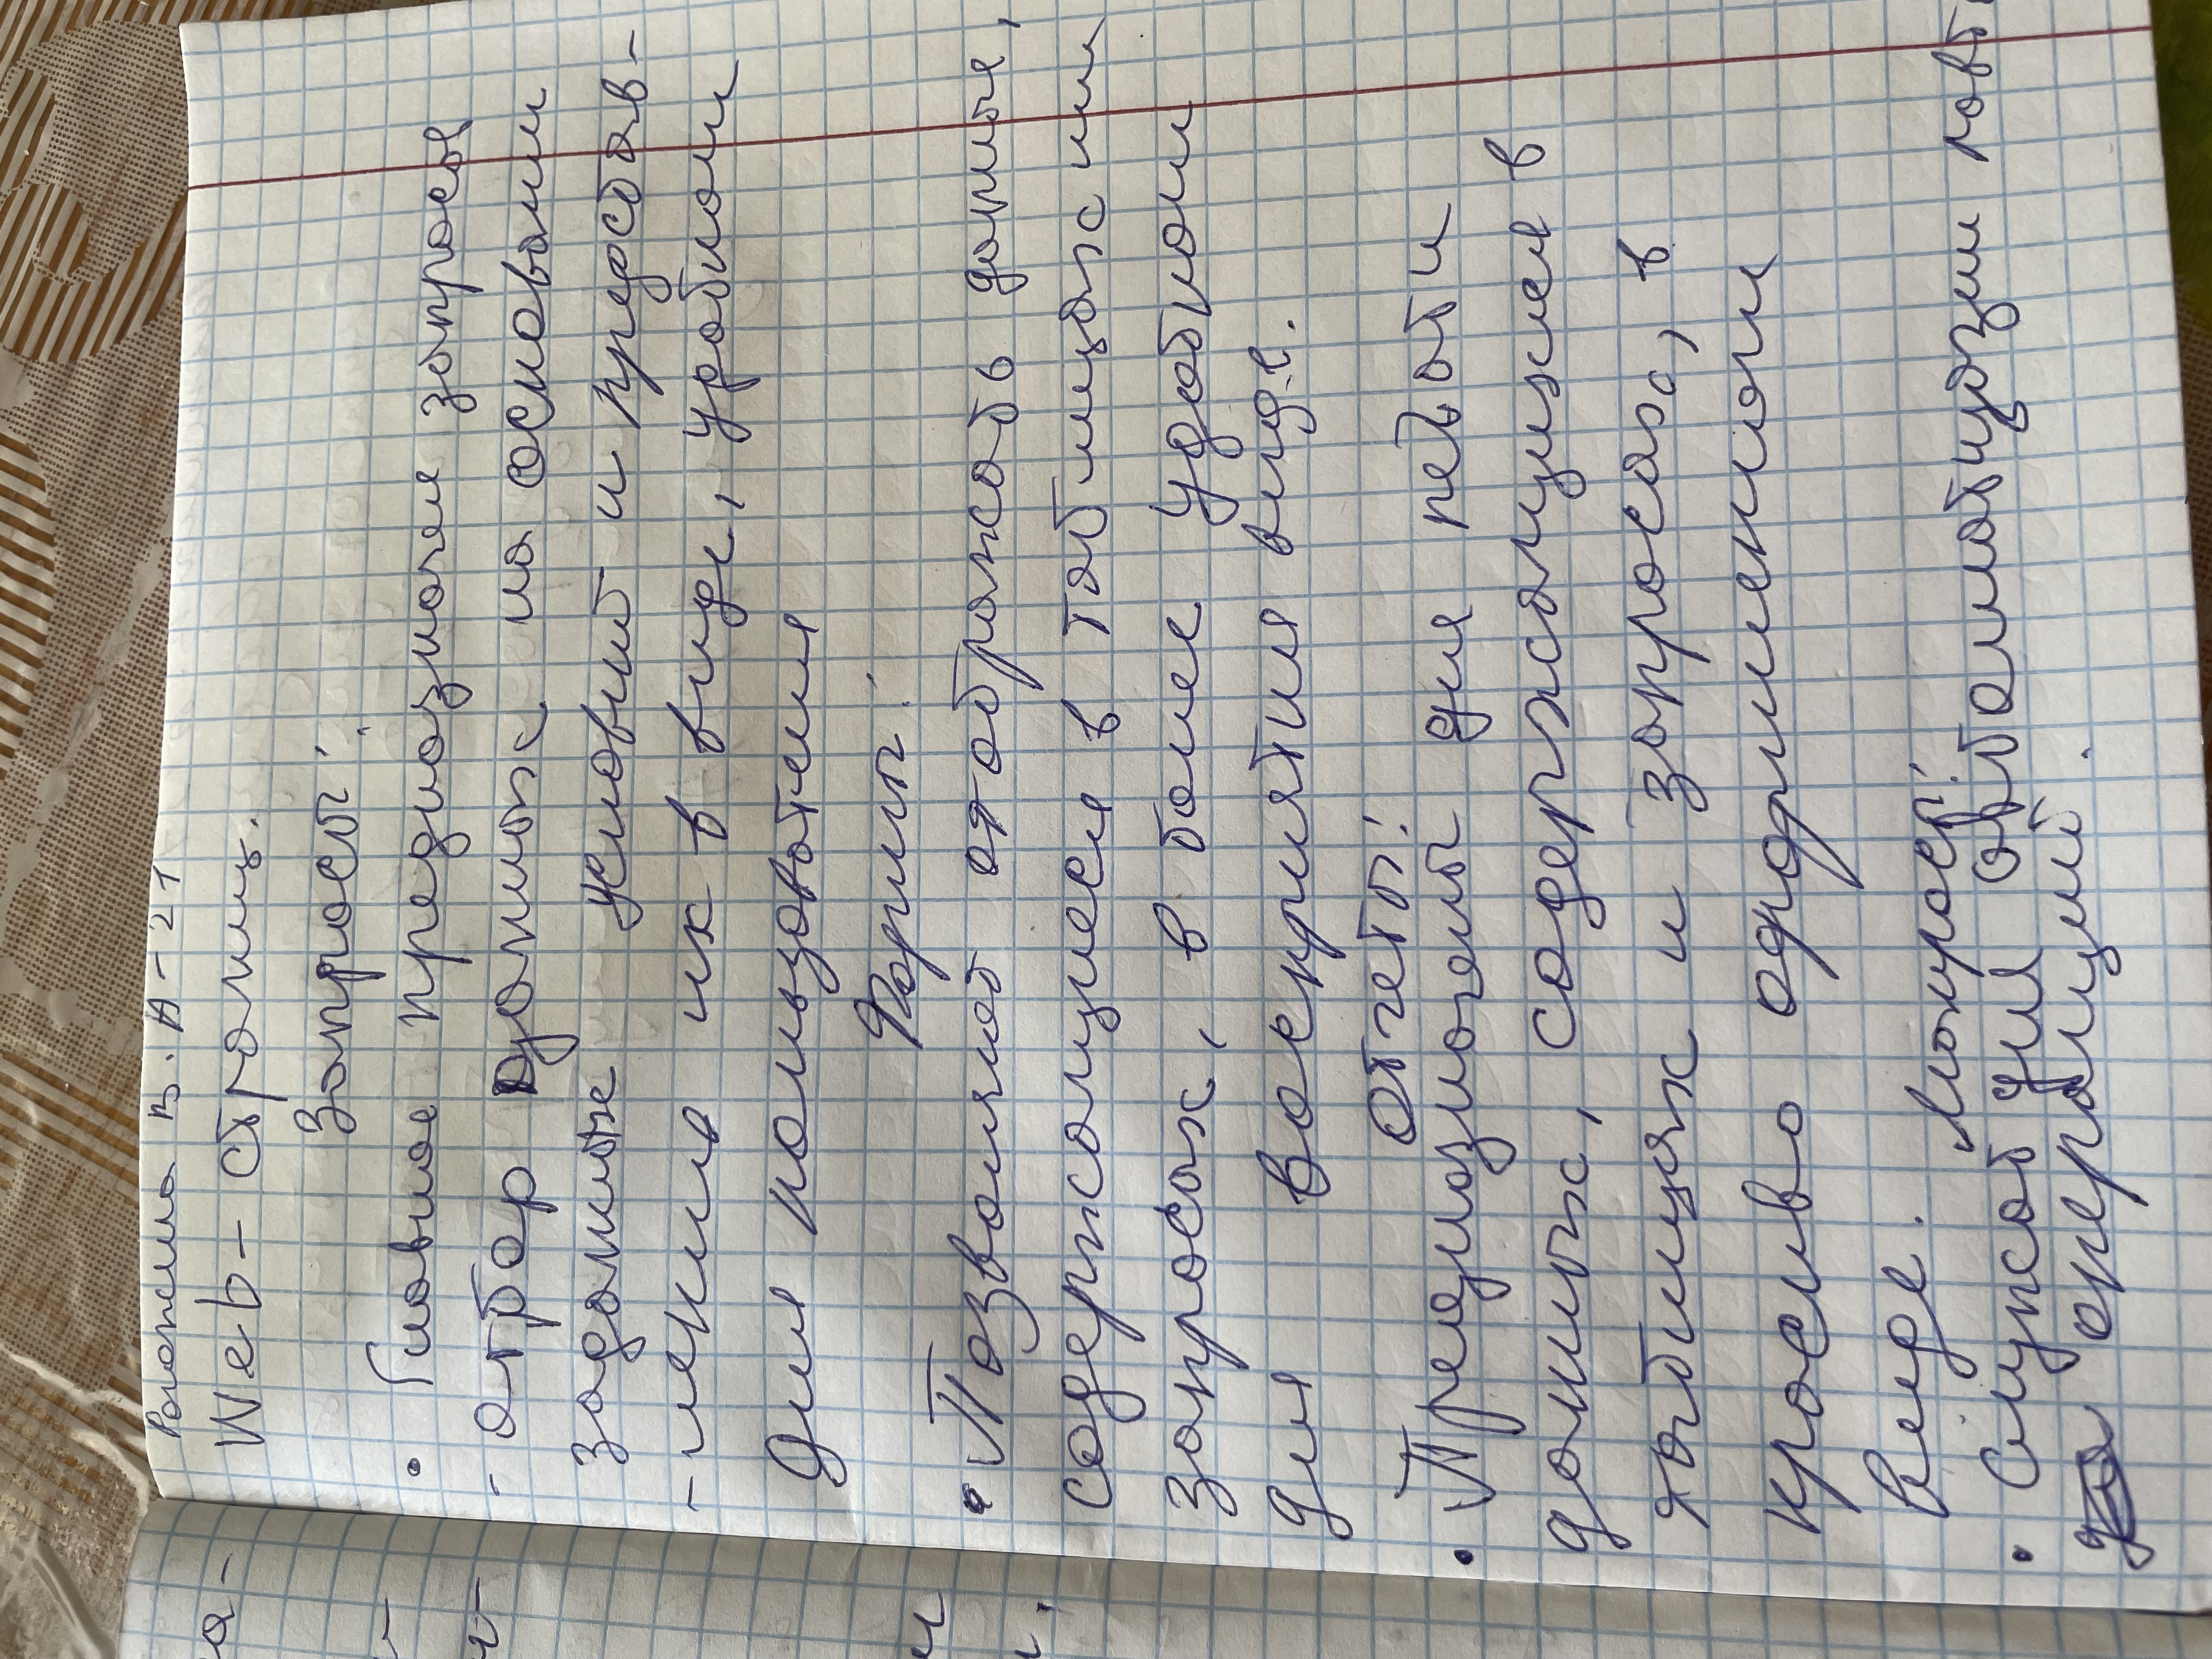 В. А-21
Web- страниц.
Запросы:
• Главное предназначен запросов
- отбор данных на основании
заданных условий и представ-
-ление их в виде, удобном
для пользователя
Формы:
• Позволяет отображать данные,
содержащиеся в таблицах или
запросах, в более удобном
для восприятия виде.
Отчеты:
• Предназначены для печати
данных, содержащиеся в
таблицах и запросах, в
красиво оформленном
виде.
Макросы:
• Служат для автоматизации повт
операций.